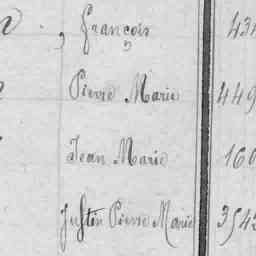 François 434
Pierre Marie 449
Jean Marie 160
Justin Pierre Marie 3543